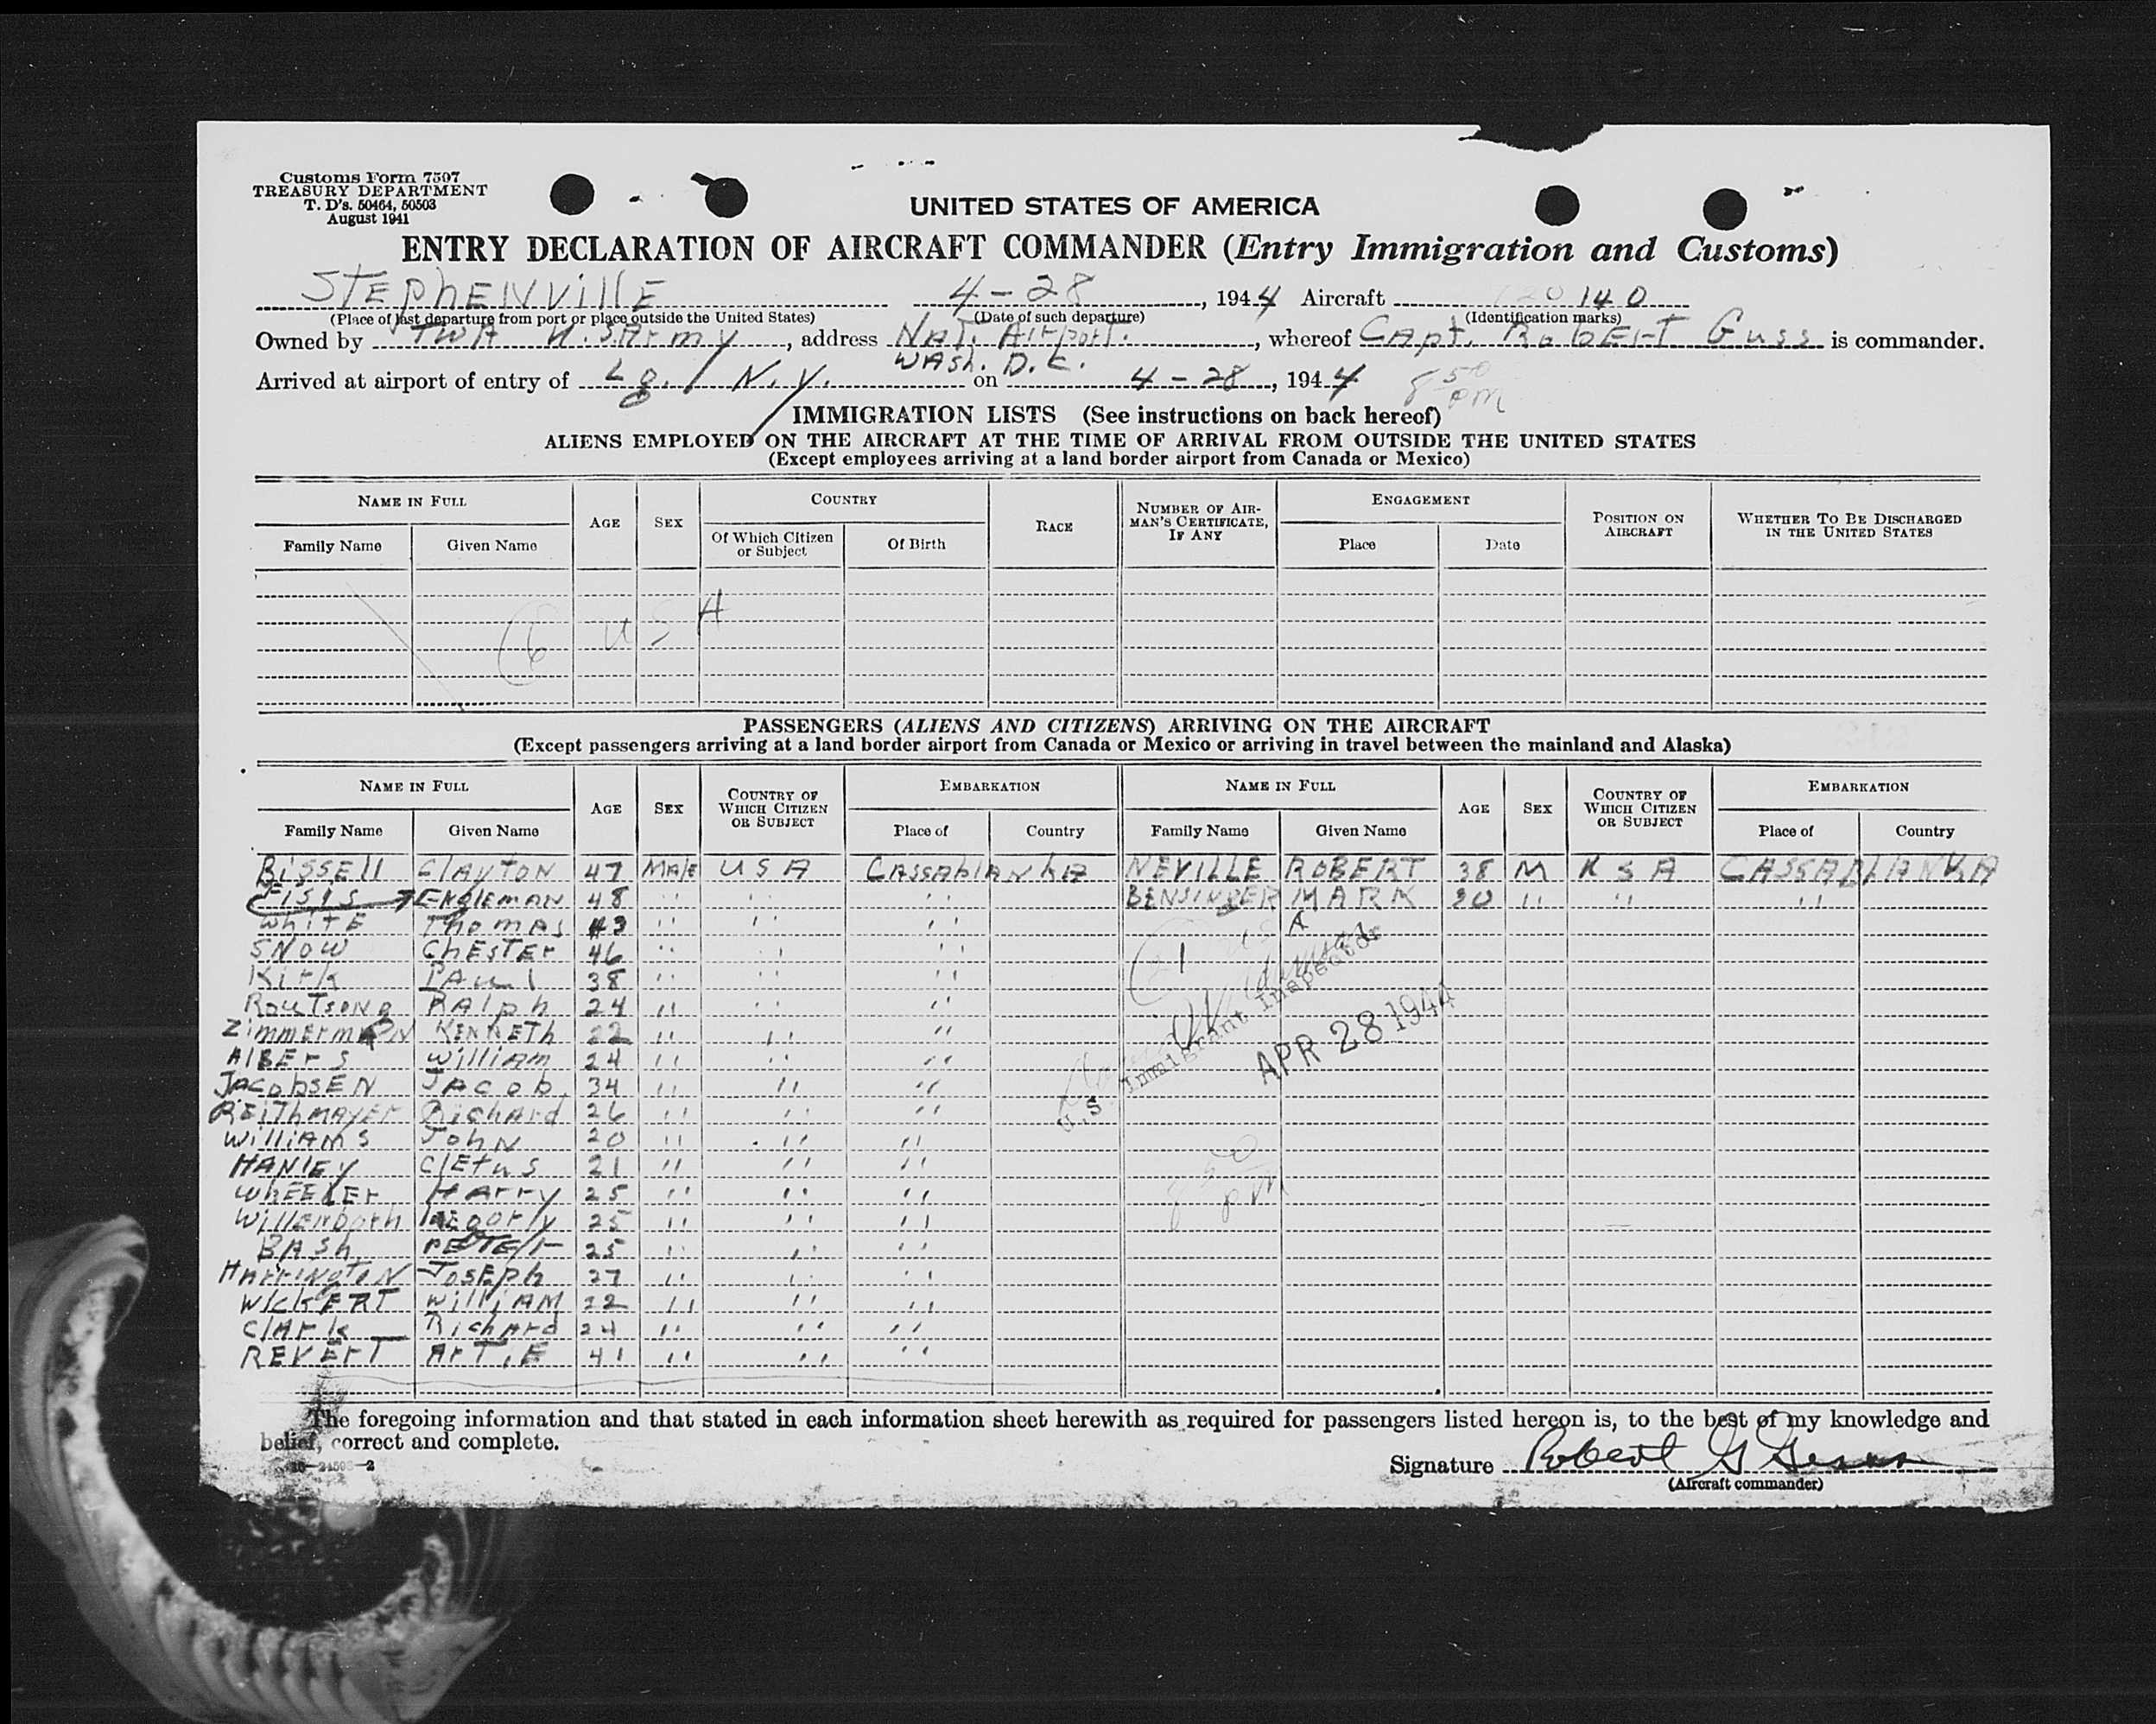 Customs Form 7507
TREASURY DEPARTMENT
T. D's. 50464, 50503
August 1941
UNITED STATES OF AMERICA
ENTRY DECLARATION OF AIRCRAFT COMMANDER (Entry Immigration and Customs)
STEPhENVillE 4-28, 1944 Aircraft 140
(Place of last departure from port or place outside the United States) (Date of such departure) (Identification marks)
Owned by TWA U.S. Army, address Nat. Airport. Wash. D.C., whereof Capt. RobErT Guss is commander.
Arrived at airport of entry of Lg. / N.Y. on 4-28, 1944 8 50 pm
IMMIGRATION LISTS (See instructions on back hereof)
ALIENS EMPLOYED ON THE AIRCRAFT AT THE TIME OF ARRIVAL FROM OUTSIDE THE UNITED STATES
(Except employees arriving at a land border airport from Canada or Mexico)
NAME IN FULL AGE SEX COUNTRY RACE NUMBER OF AIRMAN'S CERTIFICATE, IF ANY ENGAGEMENT POSITION ON AIRCRAFT WHETHER TO BE DISCHARGED IN THE UNITED STATES
Family Name Given Name Of Which Citizen or Subject Of Birth Place Date
6 USA
PASSENGERS (ALIENS AND CITIZENS) ARRIVING ON THE AIRCRAFT
(Except passengers arriving at a land border airport from Canada or Mexico or arriving in travel between the mainland and Alaska)
NAME IN FULL AGE SEX COUNTRY OF WHICH CITIZEN OR SUBJECT EMBARKATION NAME IN FULL AGE SEX COUNTRY OF WHICH CITIZEN OR SUBJECT EMBARKATION
Family Name Given Name Place of Country Family Name Given Name Place of Country
BissEll ClAyTON 47 MAlE USA CAssAblANkA NEVILLE ROBERT 38 M USA CASSABlANKA
ENGlEMAN 48 " " " BENSINGER MARK 30 " " "
WhiTE ThomAs 43 " " "
SNOW ChEsTEr 46 " " "
Kirk PAul 38 " " "
RouTsong RAlph 24 " " "
ZimmErmAN KENNETh 22 " " "
AlBErs WilliAm 24 " " "
JAcobsEN JAcob 34 " " "
REiThmAyEr RichArd 26 " " "
WilliAms John 20 " " "
HANlEy ClEtus 21 " " "
WhEElEr HArry 25 " " "
WillEnborh 25 " " "
BAsh PETEr 25 " " "
HArriNgToN JosEph 27 " " "
WickErT WilliAM 22 " " "
ClArk RichArd 24 " " "
REVErT ArTiE 41 " " "
U.S. Immigrant Inspector
APR 28 1944
8 50 pm
The foregoing information and that stated in each information sheet herewith as required for passengers listed hereon is, to the best of my knowledge and
belief, correct and complete.
Signature Robert G Guss
(Aircraft commander)